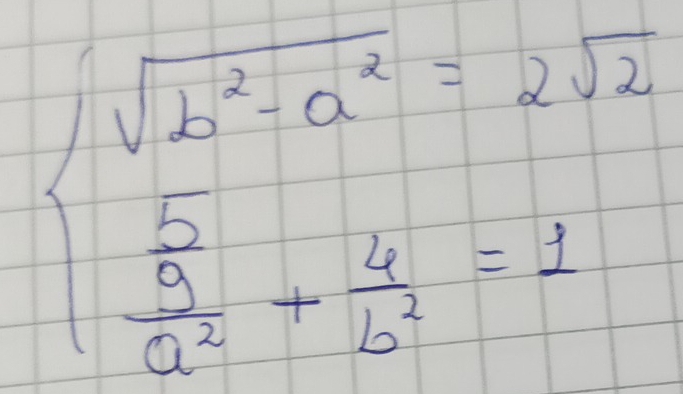 √(b² - a²) = 2√2
(5/9)/a² + 4/b² = 1